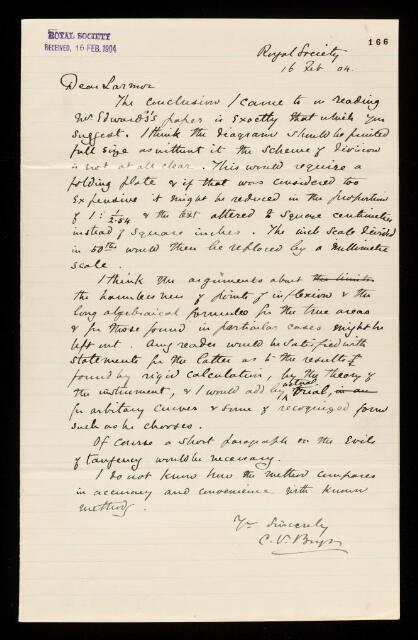 ROYAL SOCIETY
RECEIVED, 16 FEB. 1904
166
Royal Society
16 Feb 04.
Dear Larmor
The conclusion I came to on reading
Mr Edwards's paper is exactly that which you
suggest. I think the diagram should be printed
full size as without it the scheme of division
is not at all clear. This would require a
folding plate & if that was considered too
expensive it might be reduced in the proportion
of 1 : 1/2.54 & the text altered to square centimetres
instead of square inches. The inch scale divided
in 50ths would then be replaced by a millimetre
scale.
I think the arguments about the limits
the harmlessness of points of inflexion & the
long algebraical formulae for the true areas
& for those found in particular cases might be
left out. Any reader would be satisfied with
statements for the latter as to the results
found by rigid calculation, by the theory of
the instrument, & I would add by actual trial, in an
for arbitary curves & some of recognized form
such as he chooses.
Of course a short paragraph on the Evils
of tangency would be necessary.
I do not know how the method compares
in accuracy and convenience with known
methods.
Yrs sincerely
C. V. Boys